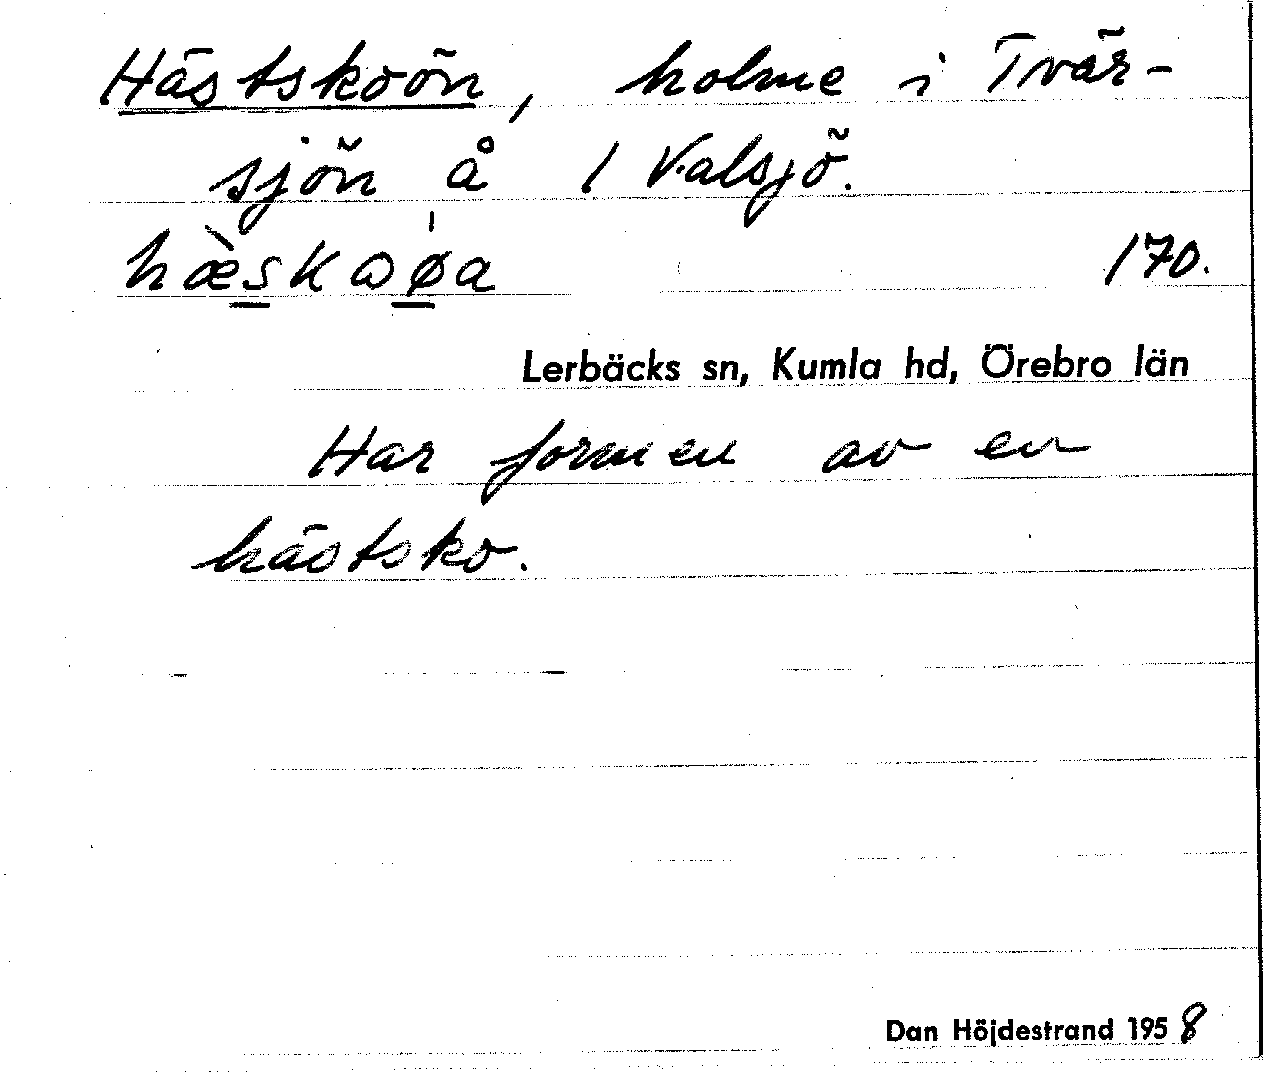 Hästskoön, holme i Tvär-
sjön å 1 Valsjö.
hæ̀skωøa 170.
Lerbäcks sn, Kumla hd, Örebro län
Har formen av en
hästsko.
Dan Höjdestrand 1958